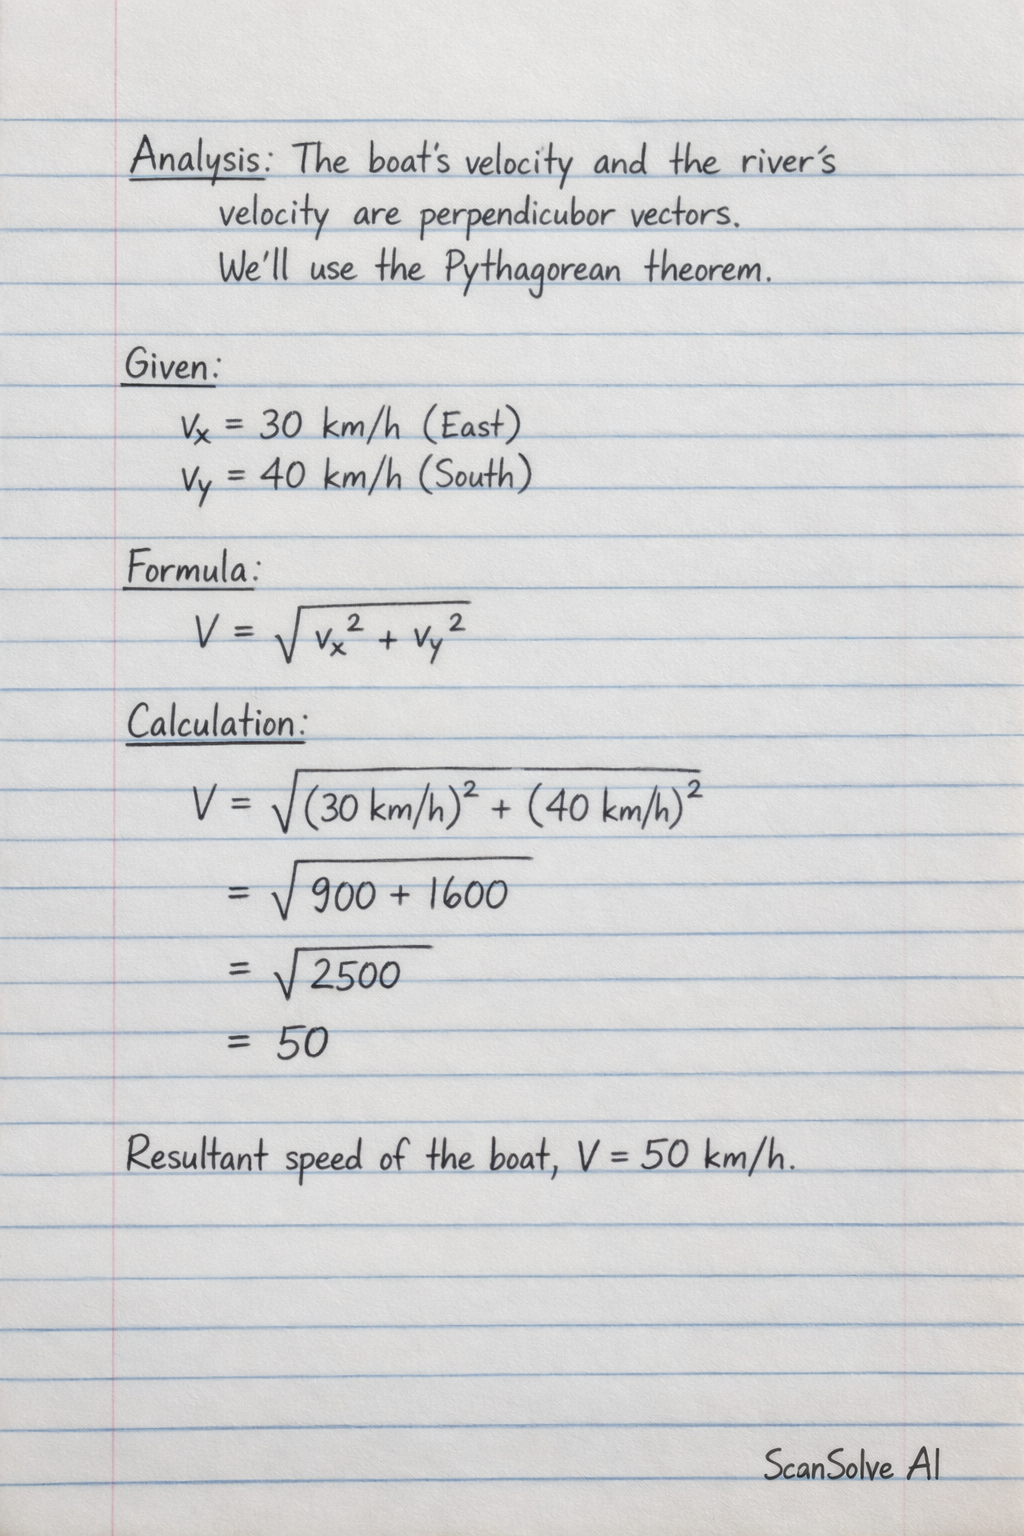 Analysis: The boat's velocity and the river's
velocity are perpendicubor vectors.
We'll use the Pythagorean theorem.
Given:
vₓ = 30 km/h (East)
v_y = 40 km/h (South)
Formula:
V = √(vₓ² + v_y²)
Calculation:
V = √((30 km/h)² + (40 km/h)²)
= √(900 + 1600)
= √2500
= 50
Resultant speed of the boat, V = 50 km/h.
ScanSolve AI